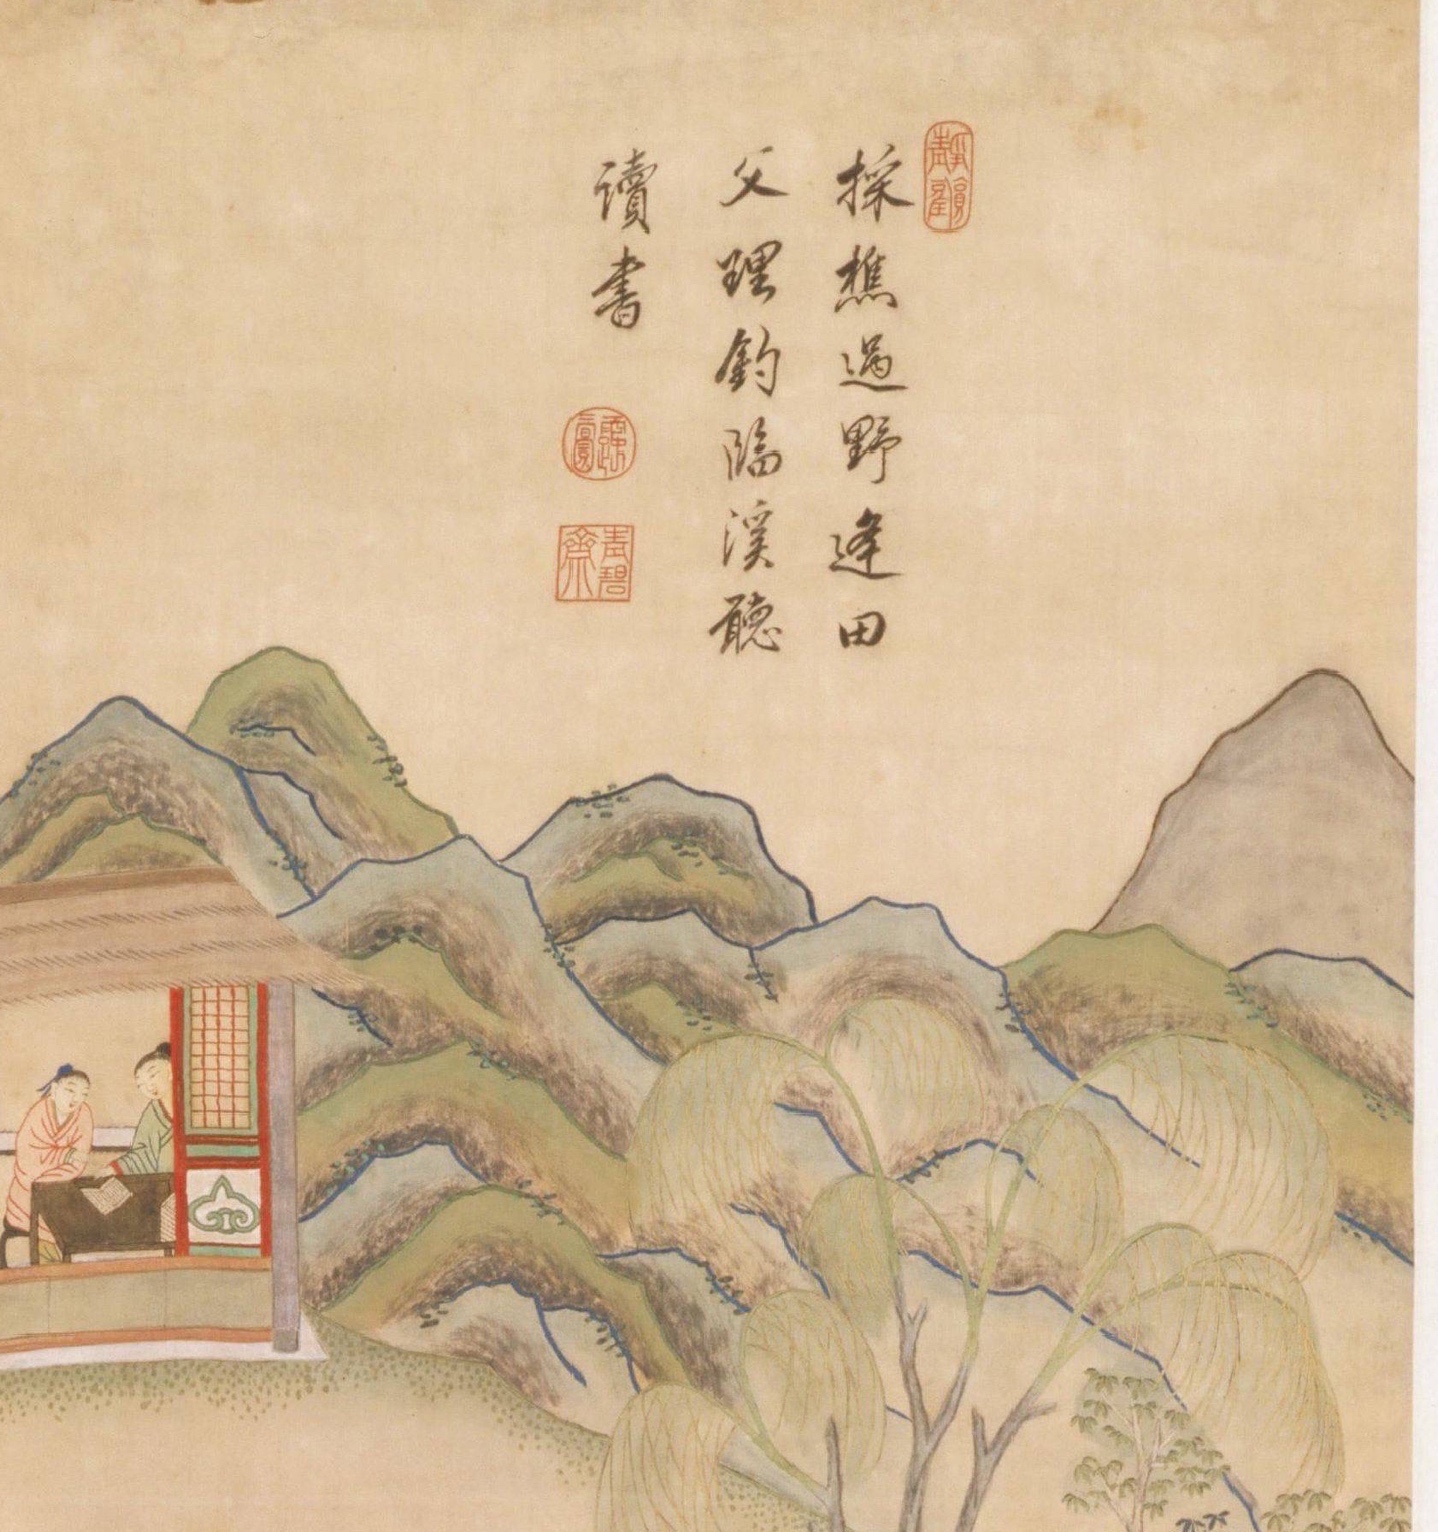 採樵過野逢田
父理釣臨溪聽
讀書
碧齋